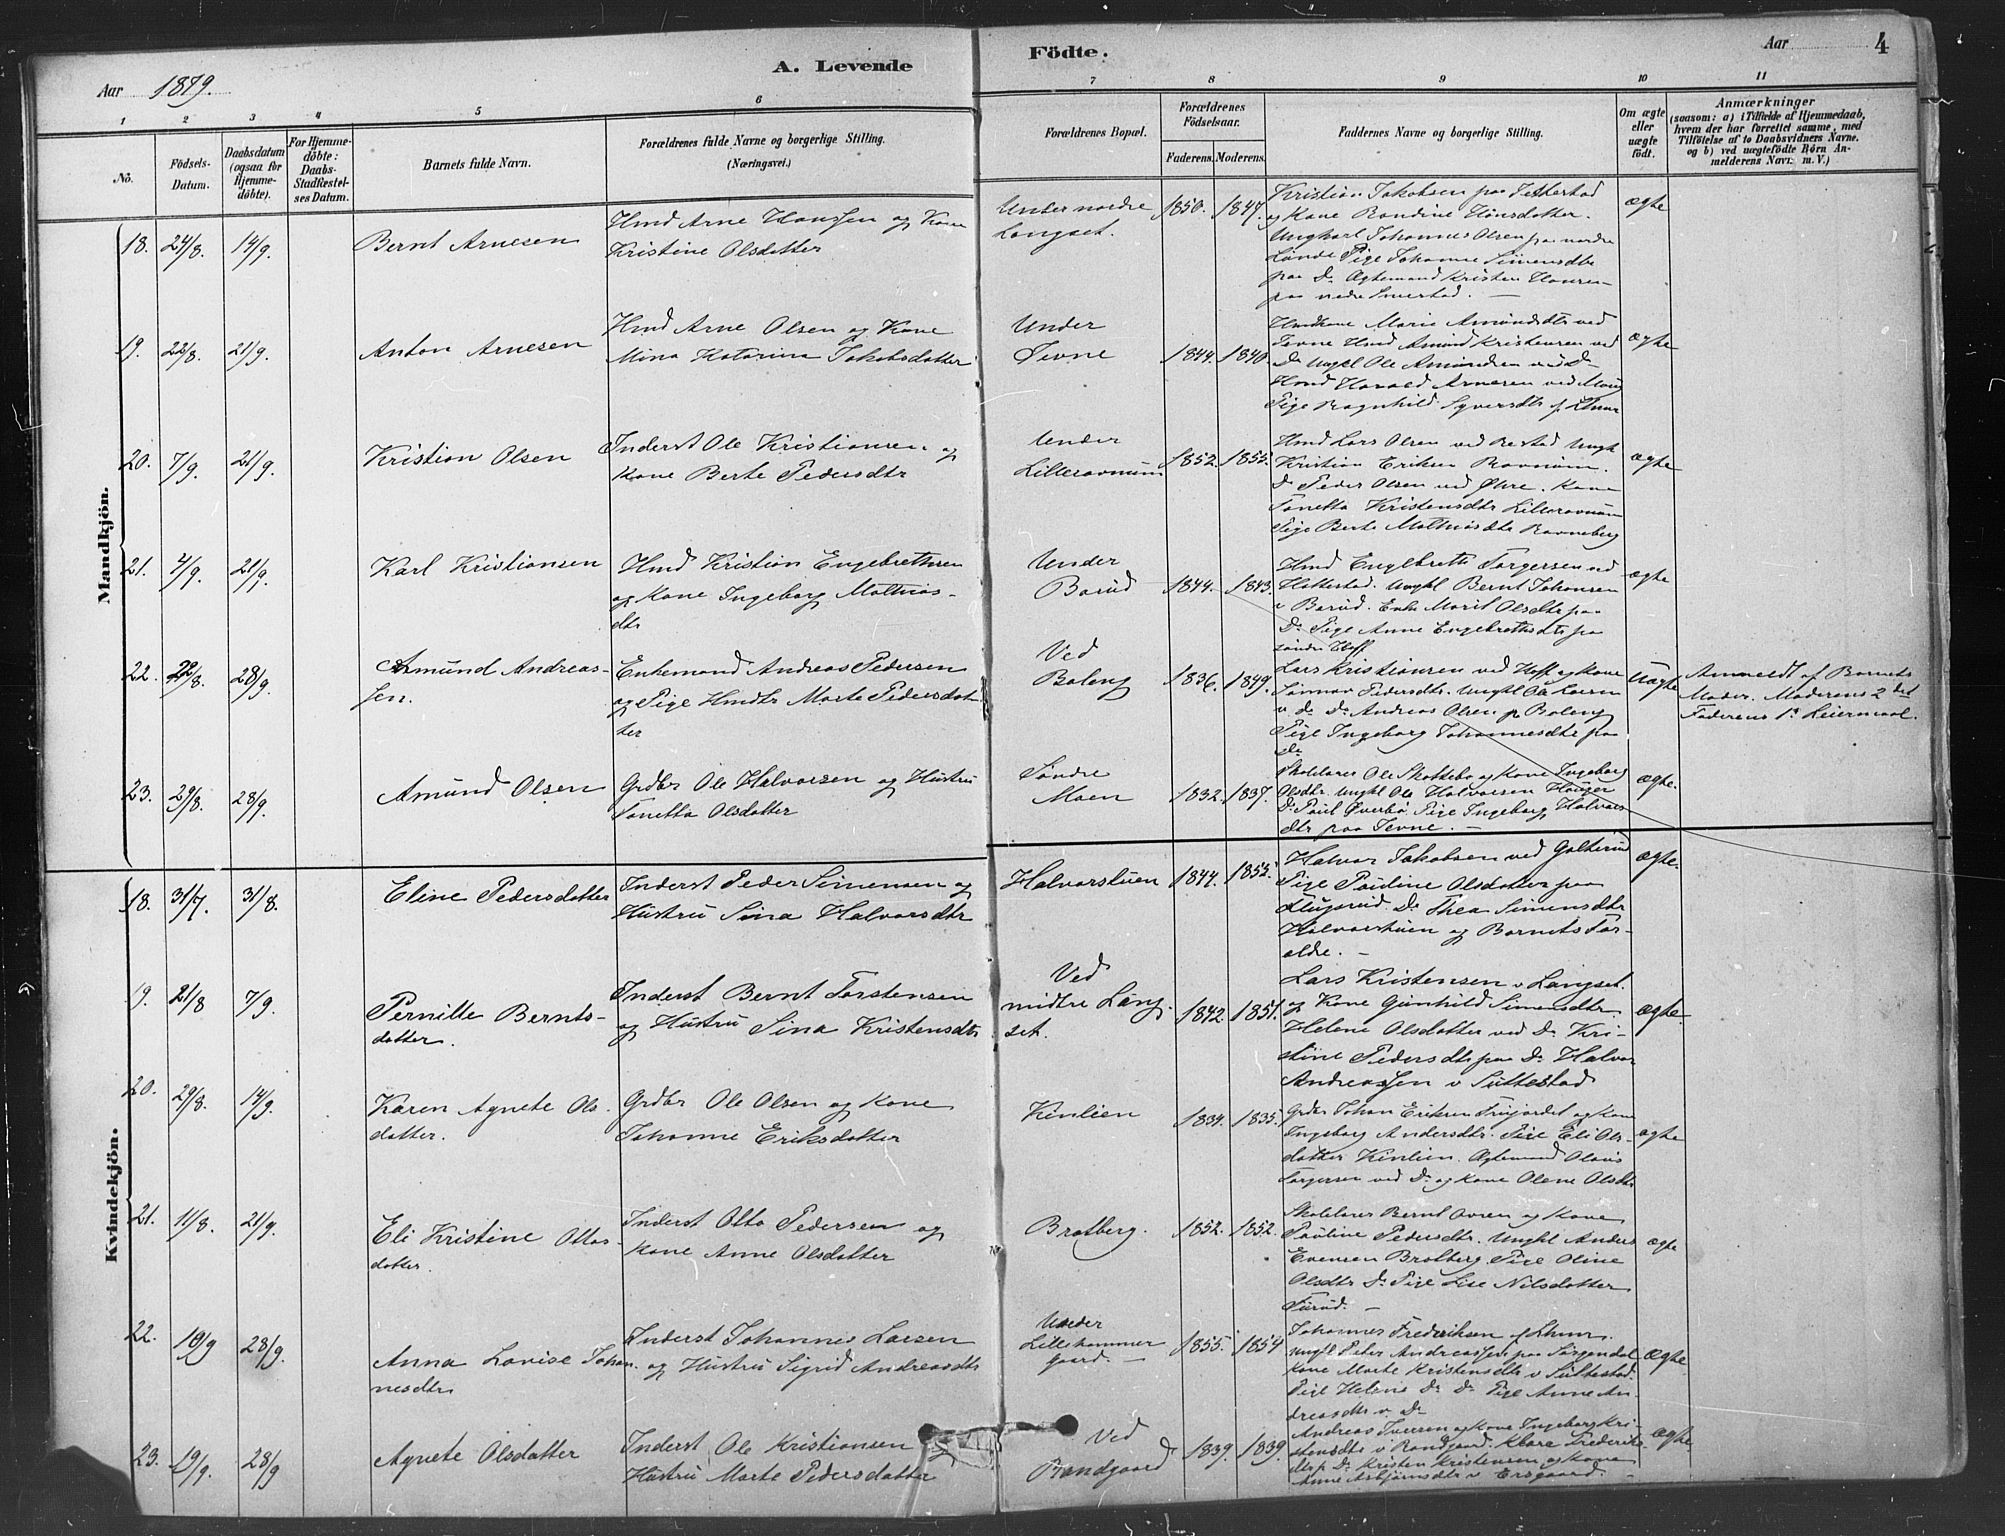 Aar 1879.
A. Levende
Födte.
Aar
4
1
2
3
4
5
6
7
8
9
10
11
No.
Födsels-
Datum.
Daabsdatum
(ogsaa for
Hjemme-
döbte).
For Hjemme-
döbte:
Daabs-
Stadfæstel-
ses Datum.
Barnets fulde Navn.
Forældrenes fulde Navne og borgerlige Stilling.
(Næringsvei.)
Forældrenes Bopæl.
Forældrenes
Födselsaar.
Faderens.
Moderens.
Faddernes Navne og borgerlige Stilling.
Om ægte
eller
uægte
födt.
Anmærkninger
(saasom: a) i Tilfælde af Hjemmedaab,
hvem der har forrettet samme, med
Tilföielse af to Daabsvidners Navne.
og b) ved uægtefödte Börn An-
melderens Navn m. V.)
Mandkjön.
18. 24/8. 14/9.
Bernt Arnesen
Hmd Arne Hanssen og Kone
Kristine Olsdatter
Under nordre
Langset.
1850. 1847.
Kristian Jakobsen paa
og Kone Bondine Hansdatter.
Ungkarl Johannes Olsen paa nordre
Pige Johanne Simensdtr
paa Do Kristen
paa nedre
ægte
19. 22/8. 21/9.
Anton Arnesen
Hmd Arne Olsen og Kone
Mina Katarina Jakobsdatter
Under
Jevne
1844. 1840.
Marie Amundsdtr ved
Jevne Hmd Amund Kristensen ved
Do Ungkl Ole Amundsen ved Do
Hmd Harald Arnesen ved
Pige Ragnhild Syversdtr
ægte
20. 7/9. 21/9.
Kristian Olsen
Inderst Ole Kristiansen og
Kone Berte Pedersdtr
Under
Lilleravnum
1852. 1855.
Hmd Lars Olsen ved Ungk
Kristian Eriksen Ravnum.
Do Peder Olsen ved Øhre. Kone
Tonetta Kristensdtr Lilleravnum
Pige Berte Mathiasdtr
ægte
21. 4/9. 21/9.
Karl Kristiansen
Hmd Kristian Engebrethsen
og Kone Ingeborg Mathias-
dtr
Under
Borud
1844. 1843.
Hmd Engebreth Torgersen ved
Hattestad. Ungkl Bernt Johansen
v Borud. Enke Marit Olsdtr paa
Do Pige Anne Engebrethsdtr paa
søndre Hoff
ægte
22. 22/8. 28/9.
Amund Andreas-
sen.
Enkemand Andreas Pedersen
og Pige Hmdtr Marte Pedersdat-
ter
Ved
Baleng
1836. 1849.
Lars Kristiansen ved Hoff og Kone
Pedersdtr. Ungkl Ole Larsen
v do Do Andreas Olsen p Baleng
Pige Ingeborg Johannesdtr paa
do
Uægte
Anmeldt af Barnets
Moder. Moderens 2det
Faderens 1ste Leiermaal.
23. 29/8. 28/9.
Amund Olsen
Grdbr Ole Halvorsen og Hustru
Tonetta Olsdatter
Søndre
Moen
1832. 1837.
Skolelærer Ole Skottebo og Kone Ingeborg
Olsdtr. Ungkl Ole Halvorsen
Do Paul Øverbø. Pige Ingeborg Halvors
dtr paa Jevne.
ægte.
Kvindekjön.
18. 31/7. 31/8.
Eline Pedersdatter
Inderst Peder Simensen og
Hustru Sina Halvorsdtr
Halvorstuen
1844. 1855.
Halvor Jakobsen ved
Pige Pauline Olsdatter paa
Do Thea Simensdtr
Halvorstuen og Barnets For-
ældre.
ægte.
19. 21/8 7/9.
Pernille Bernts-
datter.
Inderst Bernt Torstensen
og Hustru Sina Kristensdtr
Ved
midtre Lang-
set.
1842. 1851.
Lars Kristensen v Langset.
og Kone Gunhild Simensdtr
Helene Olsdatter ved Do Kri-
stine Pedersdtr paa Do Halvor
Andreassen v Suttestad
ægte.
20. 29/8. 14/9.
Karen Agnete Ols-
datter.
Grdbr Ole Olsen og Kone
Johanne Eriksdatter
Kinlien
1834. 1835.
Grdbr Johan Eriksen og Kone
Ingeborg Andersdtr. Pige Eli Ols-
datter Kinlien.
Torgersen ved Do og Kone Olene Olsdtr
ægte
21. 11/8. 21/9.
Eli Kristine Ottos-
datter.
Inderst Otto Pedersen og
Kone Anne Olsdatter
Brotberg.
1852. 1852.
Skolelærer Bernt og Kone
Pauline Pedersdtr. Ungkl Anders
Evensen Brotberg. Pige Oline
Olsdtr Do Pige Lise Nilsdatter
Furud.
ægte
22. 19/9 28/9.
Anna Lovise Johan-
nesdtr
Inderst Johannes Larsen
og Hustru Sigrid Andreasdtr
Under
Lillehammer
gaard.
1855. 1854
Johannes Frederiksen
Ungkl Peter Andreassen paa
Kone Marte Kristensdtr v Suttestad
Pige Helene Do Do Pige Anne An-
dreasdtr v Do
ægte
23. 19/9. 28/9
Agnete Olsdatter
Inderst Ole Kristiansen og
Hustru Marte Pedersdatter
Ved
Bandgaard
1839. 1839.
Andreas Iversen og Kone Ingeborg Kri-
stensdtr v Bandgaard. Klara Frederiks-
dtr p Do Kristen Kristensen og Kone
Anne Asbjørnsdtr v Ersgaard.
ægte